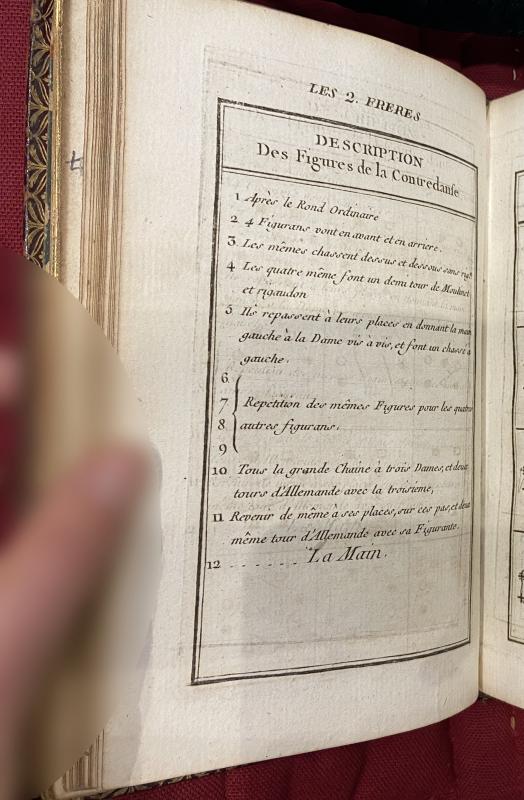 LES 2. FRERES
DESCRIPTION
Des Figures de la Contredanse
1 Après le Rond Ordinaire
2 4 Figurans vont en avant et en arriere.
3 Les mêmes chassent dessus et dessous sans rig.
4 Les quatre même font un demi tour de Moulinet
et rigaudon
5 Ils repassent à leurs places en donnant la main
gauche à la Dame vis à vis, et font un chassé à
gauche.
6
7 Repetition des mêmes Figures pour les quatre
8 autres figurans.
9
10 Tous la grande Chaine à trois Dames, et deux
tours d'Allemande avec la troisieme,
11 Revenir de même à ses places, sur ces pas, et deux
même tour d'Allemande avec sa Figurante.
12 . . . . . . . La Main.